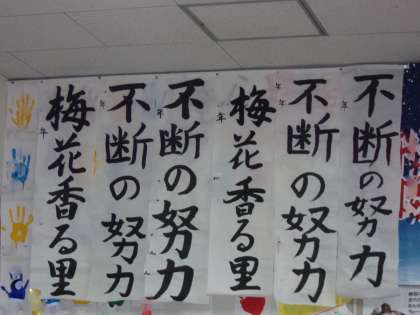 不断の努力
不断の努力
梅花香る里
不断の努力
不断の努力
梅花香る里